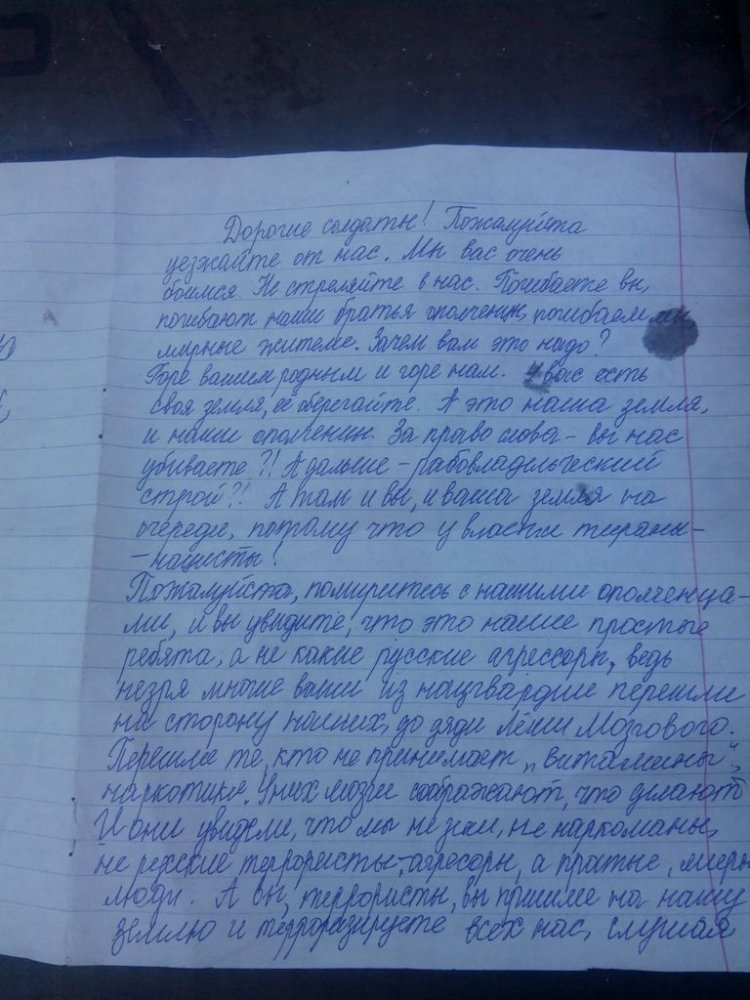 Дорогие солдаты! Пожалуйста
уезжайте от нас. Мы вас очень
боимся. Не стреляйте в нас. Погибаете вы,
погибают наши братья ополченцы, погибаем мы
мирные жители. Зачем вам это надо?
Горе вашим родным и горе нам. У вас есть
своя земля, её оберегайте. А это наша земля,
и наши ополченцы. За право слова – вы нас
убиваете?! А дальше – рабовладельческий
строй?! А там и вы, и ваша земля на
очереди, потому что у власти тираны-
-нацисты!
Пожалуйста, помиритесь с нашими ополченца-
ми, и вы увидите, что это наши простые
ребята, а не какие русские агрессоры, ведь
незря многие ваши из нацгвардии перешли
на сторону наших, до дяди Лёши Мозгового.
Перешли те, кто не принимает „витамины",
наркотики. У них мозги соображают, что делают
И они увидели, что мы не злы, не наркоманы,
не террористы-агресоры, а мирн
люди. А вы, террористы, вы пришли на нашу
землю и терроризируете всех нас, слушая